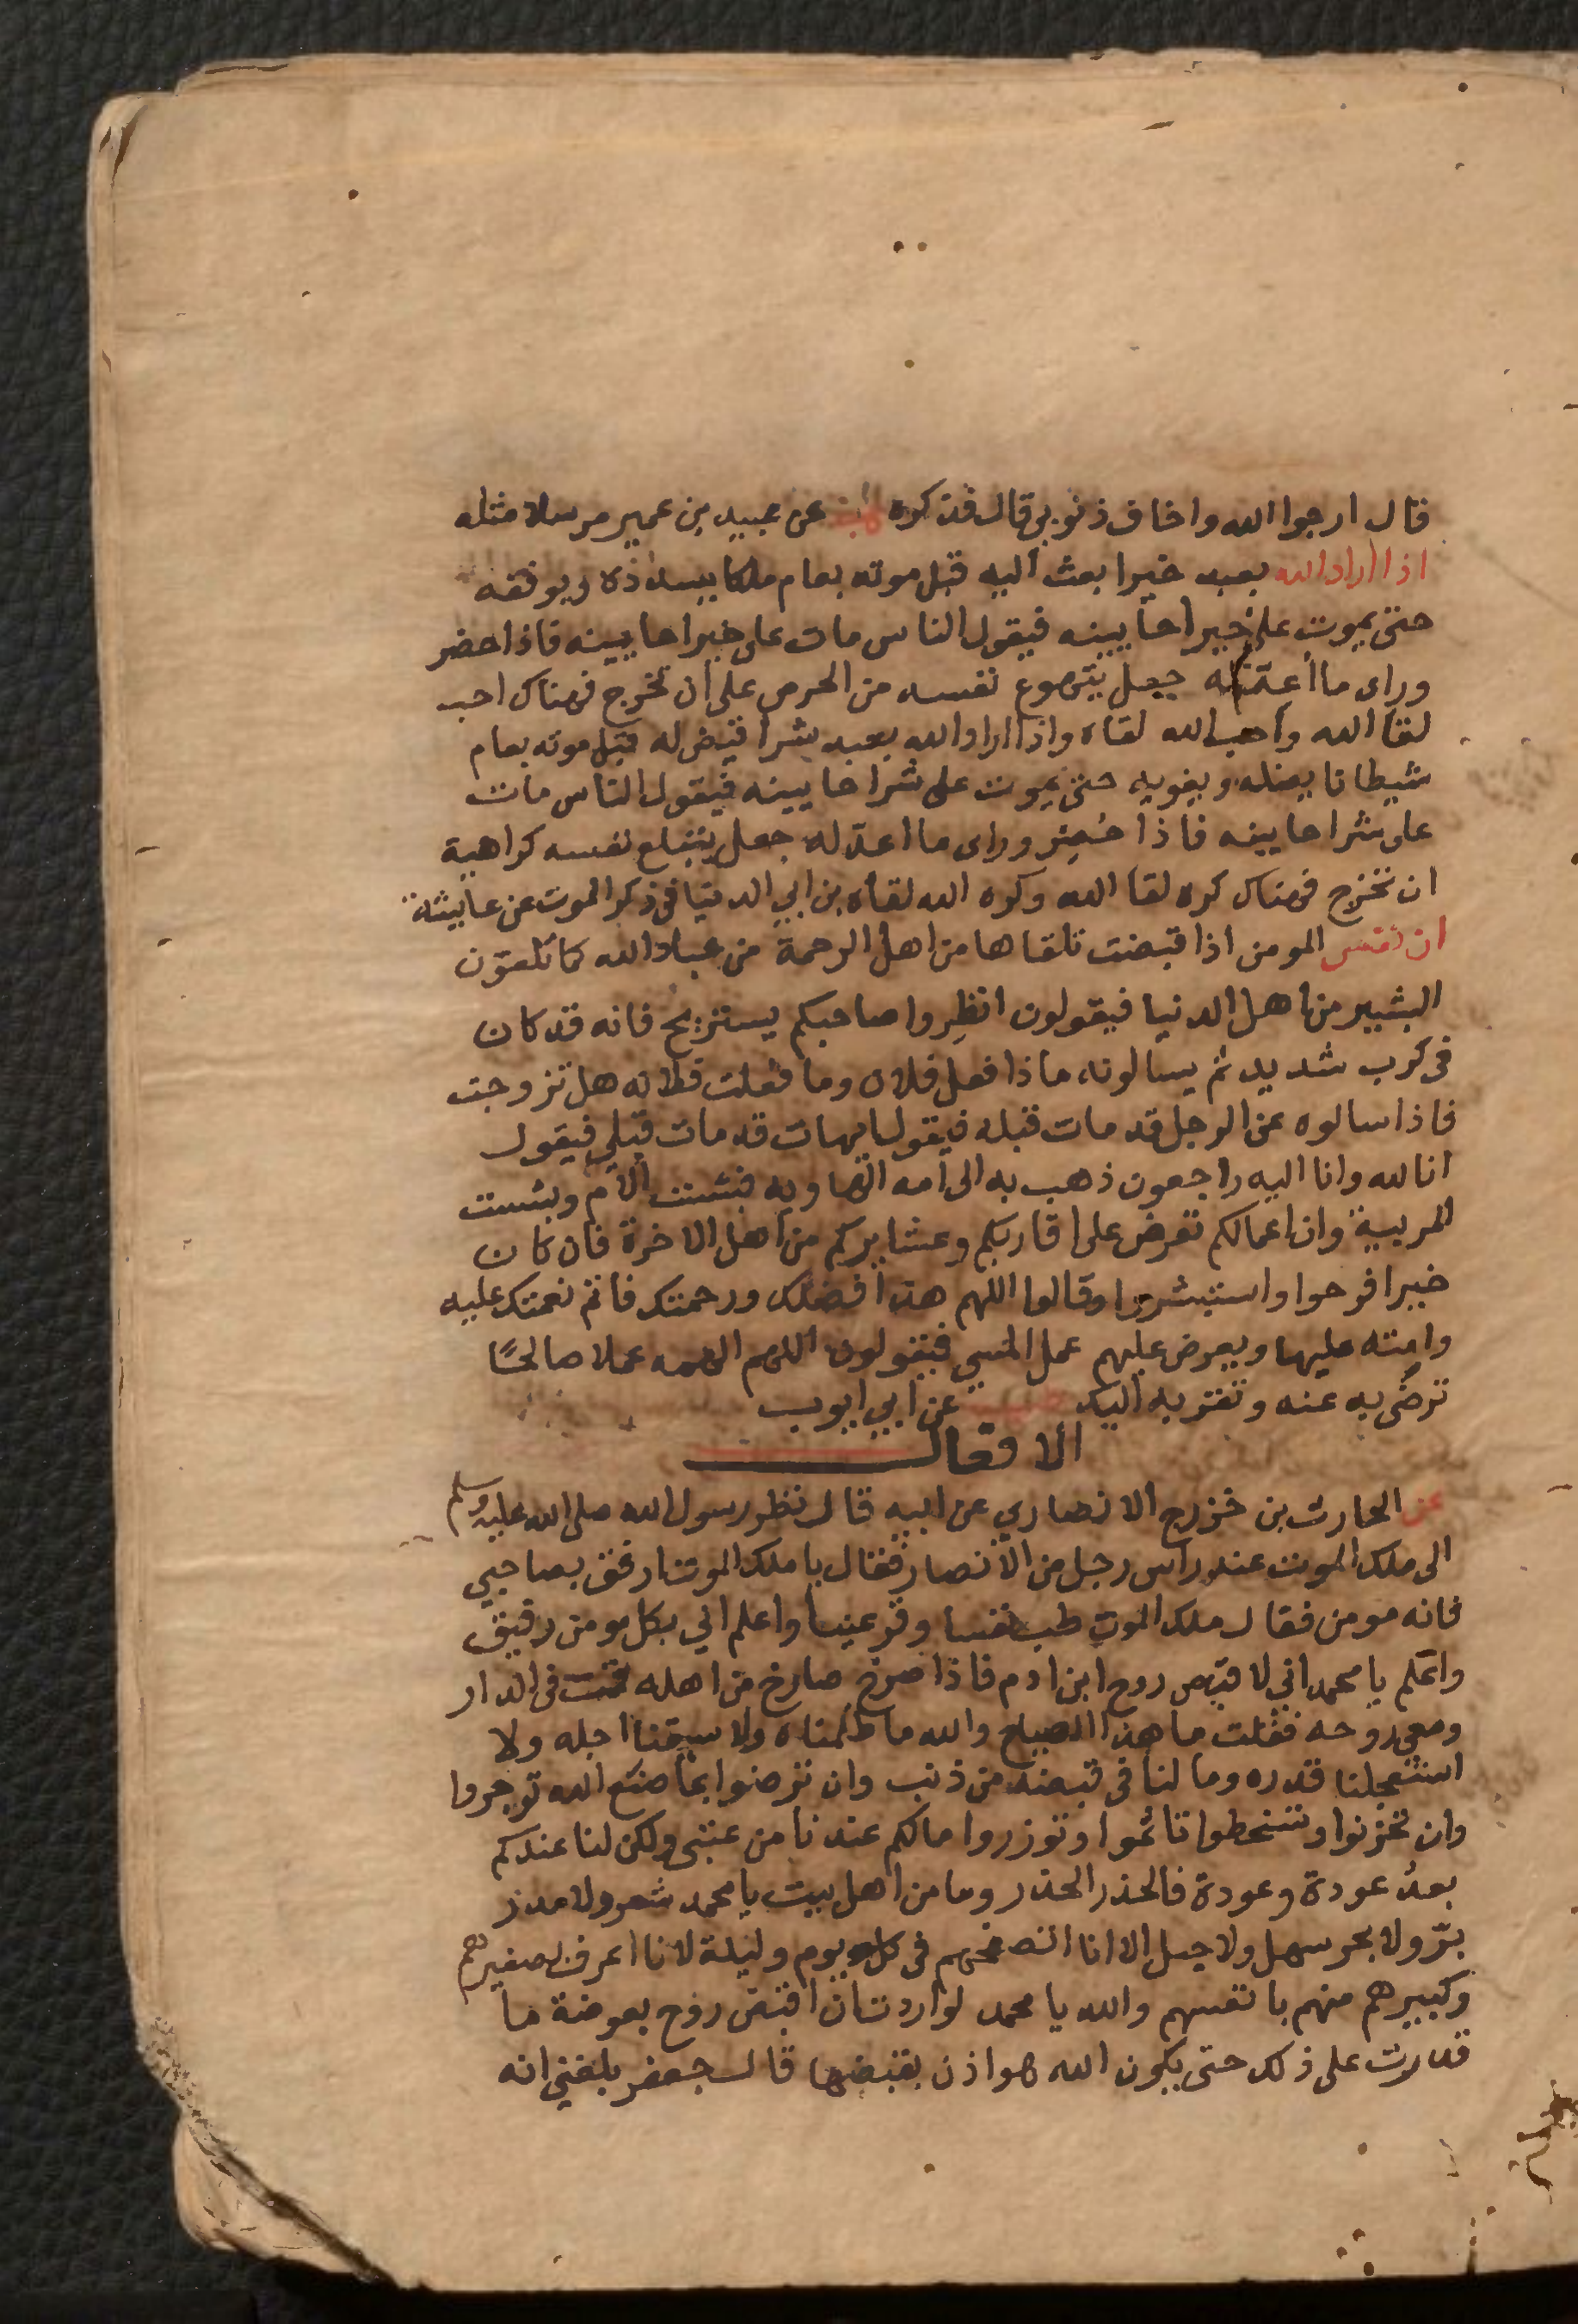 قال ارجوا الله واخاف ذنوبي قال فذكره هب عن عبيد بن عمير مرسلا مثله
اذا اراد الله بعبد خيرا بعث اليه قبل موته بعام ملكا يسدده ويوفقه
حتى يموت على خير احايينه فيقول الناس مات على خير احايينه فاذا حضر
وراى ما اعد له جعل يتهوع نفسه من الحرص على ان تخرج فهناك احب
لقا الله واحب الله لقاه واذا اراد الله بعبد شرا قيض له قبل موته بعام
شيطانا يضله ويغويه حتى يموت على شر احايينه فيقول الناس مات
على شر احايينه فاذا حُضِر وراى ما اعدّ له جعل يتبلع نفسه كراهية
ان تخرج فهناك كره لقا الله وكره الله لقاه بن ابي الدنيا في ذكر الموت عن عايشة
ان نفس المومن اذا قبضت تلقاها من اهل الرحمة من عباد الله كما تلقون
البشير من اهل الدنيا فيقولون انظِروا صاحبكم يستريح فانه قد كان
في كرب شديد ثم يسالونه ماذا فعل فلان وما فعلت فلانه هل تزوجت
فاذا سالوه عن الرجل قد مات قبله فيقول ايهات قد مات قبلي فيقول
انا لله وانا اليه راجعون ذهب به الى امه الهاويه فبئست الام وبئست
المربية وان اعمالكم تعرض على اقاربكم وعشايركم من اهل الاخرة فان كان
خيرا فرحوا واستبشروا وقالوا اللهم هذا فضلك ورحمتك فاتم نعمتك عليه
وامته عليها ويعرض عليهم عمل المسي فيقولون اللهم الهمه عملا صالحًا
ترضى به عنه وتقربه اليك عن ابي ايوب
الافعال
عن الحارث بن خزرج الانصاري عن ابيه قال نظر رسول الله صلى الله عليه وسلم
الى ملك الموت عند راس رجل من الانصار فقال يا ملك الموت ارفق بصاحبي
فانه مومن فقال ملك الموت طب نفسا وقر عينا واعلم اني بكل مومن رفيق
واعلم يا محمد اني لاقبض روح ابن ادم فاذا صرخ صارخ من اهله قمت في الدار
ومعي روحه فقلت ما هذا الصياح والله ما ظلمناه ولا سبقنا اجله ولا
استعجلنا قدره وما لنا في قبضه من ذنب وان ترضوا بما صنع الله توجروا
وان تحزنوا وتسخطوا تاثموا وتوزروا مالكم عندنا من عتبى ولكن لنا عندكم
بعدُ عودة وعودة فالحذر الحذر وما من اهل بيت يا محمد شعر ولا مدر
برّ ولا بحر سهل ولا جبل الا انا اتصفحهم في كل يوم وليلة لانا اعرف بصغيرهم
وكبيرهم منهم بانفسهم والله يا محمد لو اردت ان اقبض روح بعوضة ما
قدرت على ذلك حتى يكون الله هو اذن بقبضها قال جعفر بلغني انه